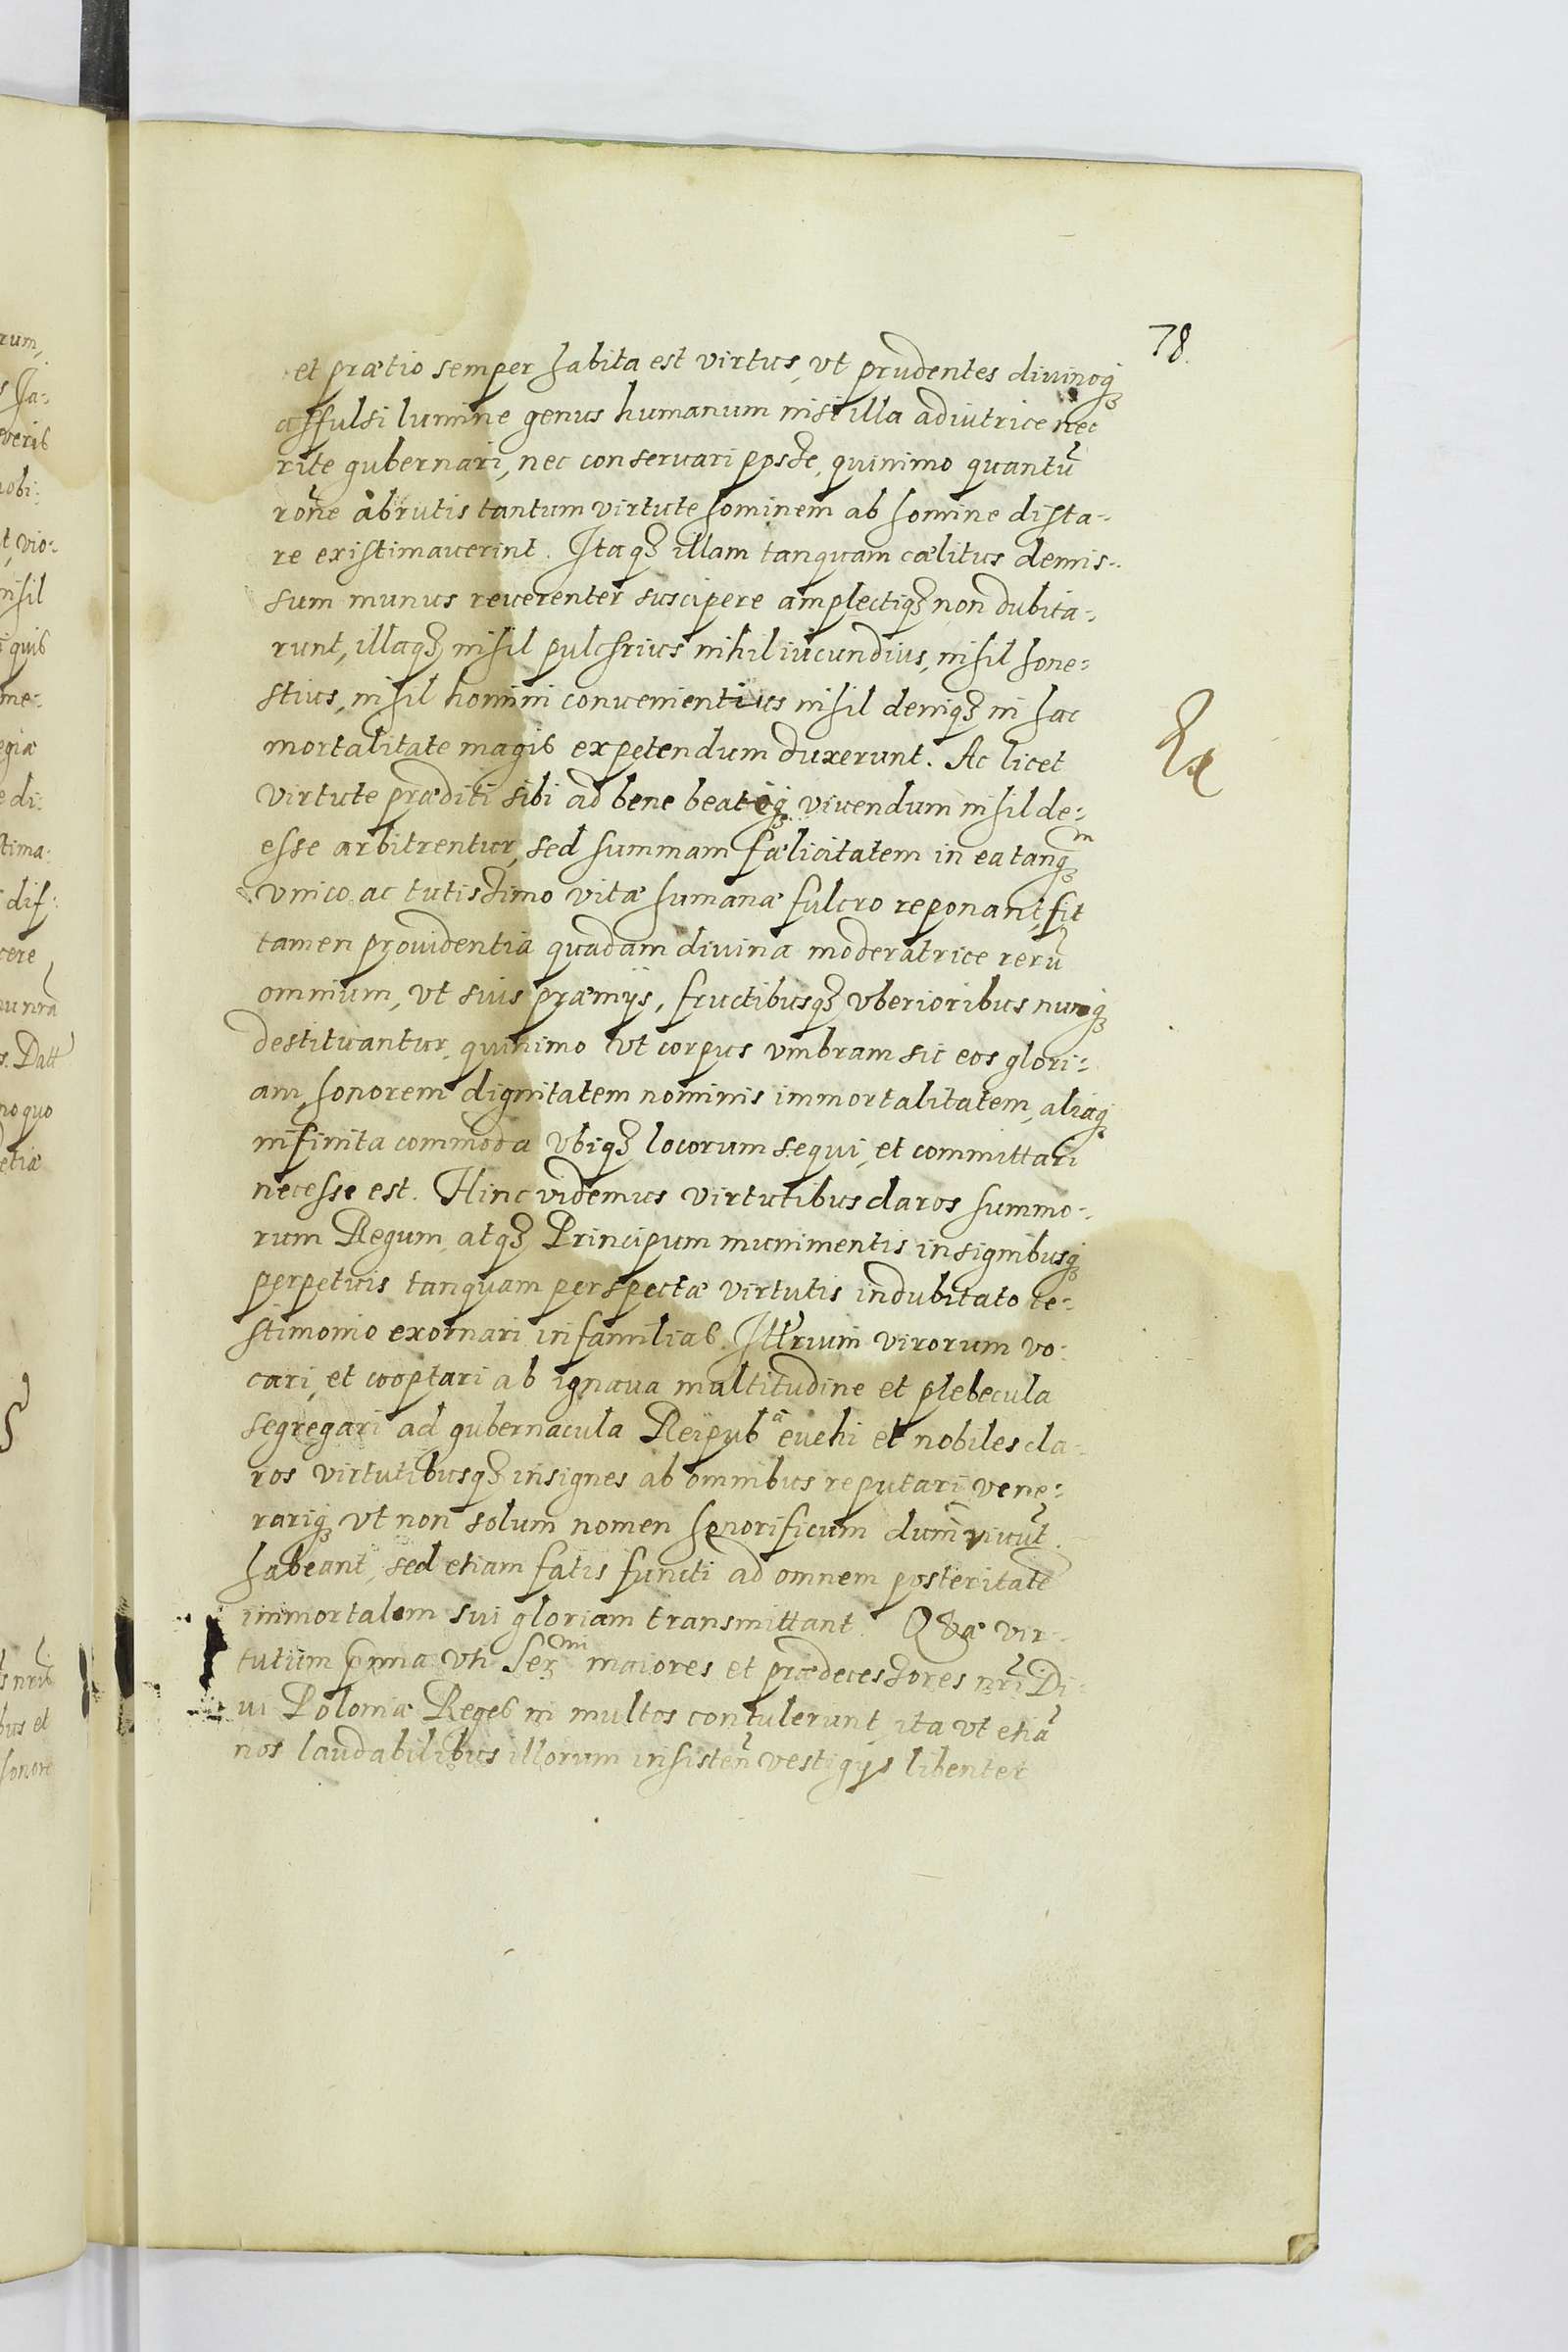 78.
et prætio semper habita est virtus, vt prudentes diuinoq₃
affulsi lumine genus humanum nisi illa adiutrice nec
rite gubernari, nec conseruari posse, quinimo quantũ
rõne à brutis tantum virtute hominem ab homine dista-
re existimauerint. Itaq₃ illam tanquam cælitus demis-
sum munus reuerenter suscipere amplectiq₃ non dubita-
runt, illaq₃ nihil pulchrius nihil iucundius, nihil hone-
stius, nihil homini conuenientius nihil deniq₃ in hac
mortalitate magis expetendum duxerunt. Ac licet
virtute præditi sibi ad bene beateq₃ viuendum nihil de-
esse arbitrentur, sed summam fælicitatem in ea tanq₃m
vnico ac tutissimo vitæ humanæ fulcro reponant, fit
tamen prouidentia quadam diuina moderatrice rerũ
omnium, vt suis præmijs, fructibusq₃ vberioribus nunq₃
destituantur, quinimo vt corpus vmbram sic eos glori-
am, honorem dignitatem nominis immortalitatem, aliaq₃
infinita commoda vbiq₃ locorum sequi, et committari
necesse est. Hinc videmus virtutibus claros summo-
rum Regum, atq₃ Principum munimentis insignibusq₃
perpetuis tanquam perspectæ virtutis indubitato te-
stimonio exornari in familias. Illrium virorum vo-
cari, et cooptari ab ignaua multitudine et plebecula
segregari ad gubernacula Reipubᵃ euehi et nobiles cla-
ros virtutibusq₃ insignes ab omnibus reputari vene-
rariq₃ vt non solum nomen honorificum dum viuũt
habeant, sed etiam fatis functi ad omnem posteritatẽ
immortalem sui gloriam transmittant. Quæ vir-
tutum pmia vti Serᵐⁱ maiores et prædecessores nri Di-
ui Poloniæ Reges in multos contulerunt, ita vt etiã
nos laudabilibus illorum insisteñ vestigijs libenter